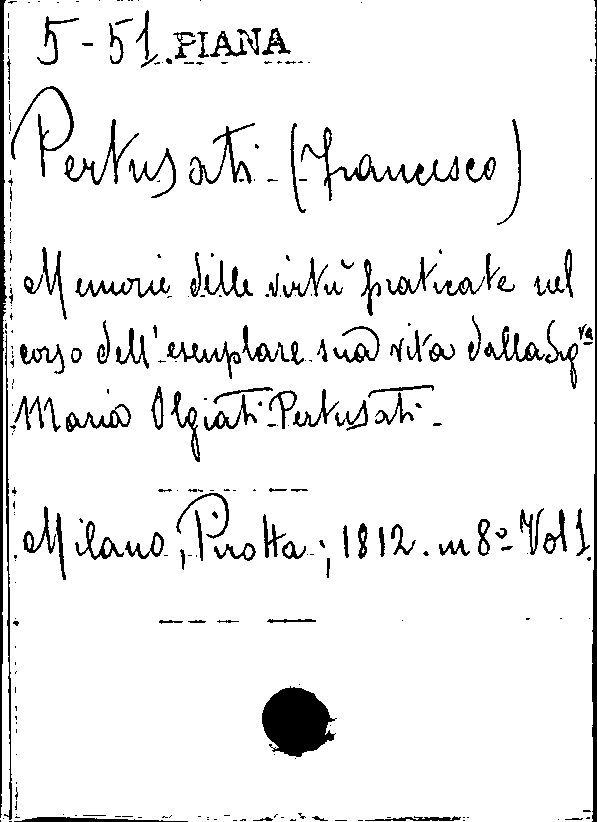 5-51. PIANA
Pertusati - (Francesco)
Memorie delle virtù praticate nel
corso dell'esemplare sua vita dalla Sigra
Maria Olgiati-Pertusati -
Milano, Pirotta; 1812. in 8º- Vol 1.